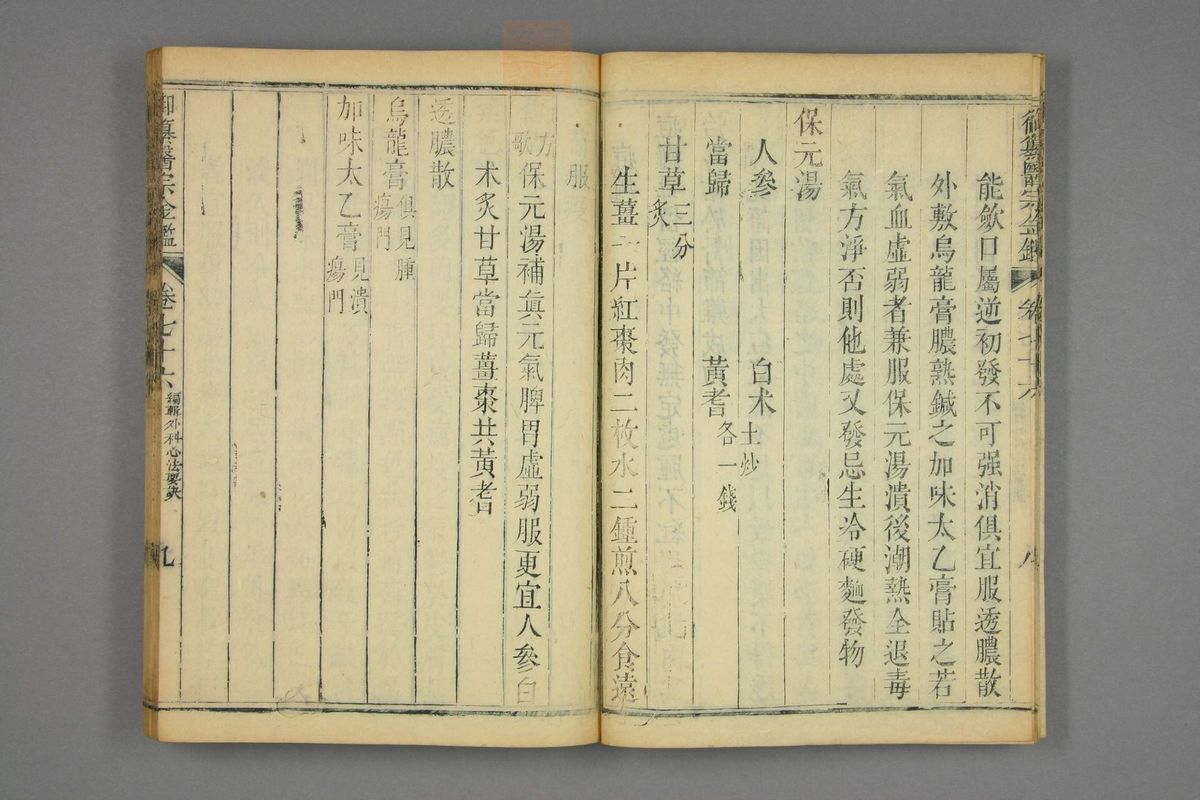 御纂醫宗金鑑 卷七十六 八
能歛口屬逆初發不可强消俱宜服透膿散
外敷烏龍膏膿熟鍼之加味太乙膏貼之若
氣血虛弱者兼服保元湯潰後潮熱全退毒
氣方淨否則他處又發忌生冷硬麵發物
保元湯
人參 白术土炒
當歸 黃耆各一錢
甘草炙三分
生薑一片紅棗肉二枚水二鍾煎八分食遠
服
方歌 保元湯補眞元氣脾胃虛弱服更宜人參白
术炙甘草當歸薑棗共黃耆
透膿散
烏龍膏俱見腫瘍門
加味太乙膏見潰瘍門
御纂醫宗金鑑 卷七十六 編輯外科心法要訣 九